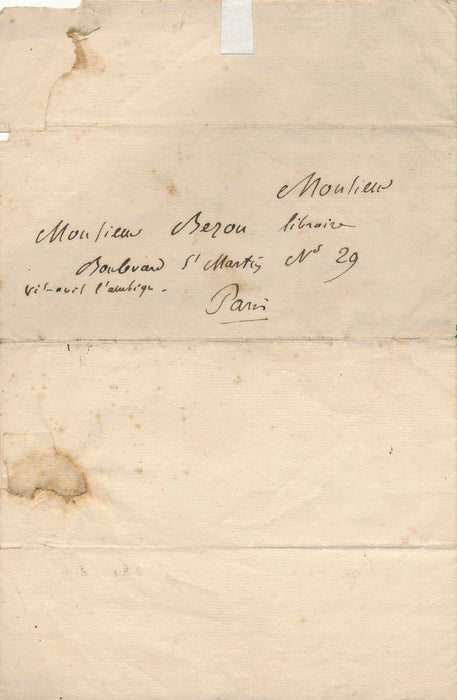 Monsieur
Monsieur Bezou libraire
Boulevard St Martin No 29
vis-avis l'ambigu.
Paris